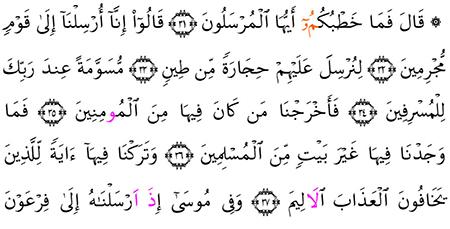 ۞ قَالَ فَمَا خَطْبُكُمُۥٓ أَيُّهَا ٱلْمُرْسَلُونَ ۝٣١ قَالُوٓا۟ إِنَّآ أُرْسِلْنَآ إِلَىٰ قَوْمٍ
مُّجْرِمِينَ ۝٣٢ لِنُرْسِلَ عَلَيْهِمْ حِجَارَةً مِّن طِينٍ ۝٣٣ مُّسَوَّمَةً عِندَ رَبِّكَ
لِلْمُسْرِفِينَ ۝٣٤ فَأَخْرَجْنَا مَن كَانَ فِيهَا مِنَ ٱلْمُومِنِينَ ۝٣٥ فَمَا
وَجَدْنَا فِيهَا غَيْرَ بَيْتٍ مِّنَ ٱلْمُسْلِمِينَ ۝٣٦ وَتَرَكْنَا فِيهَآ ءَايَةً لِّلَّذِينَ
يَخَافُونَ ٱلْعَذَابَ ٱلَالِيمَ ۝٣٧ وَفِى مُوسَىٰٓ إِذَ اَرْسَلْنَٰهُ إِلَىٰ فِرْعَوْنَ